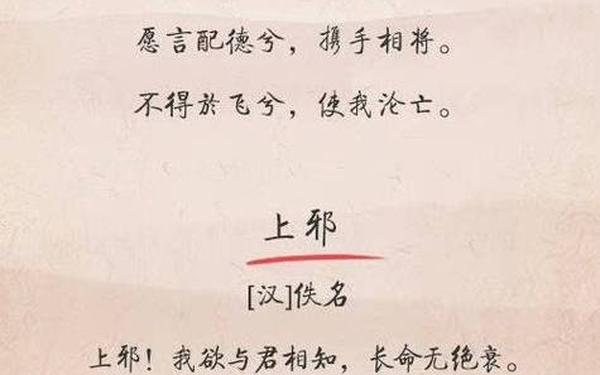 愿言配德兮，携手相将。
不得於飞兮，使我沦亡。
上邪
[汉]佚名
上邪！我欲与君相知，长命无绝衰。